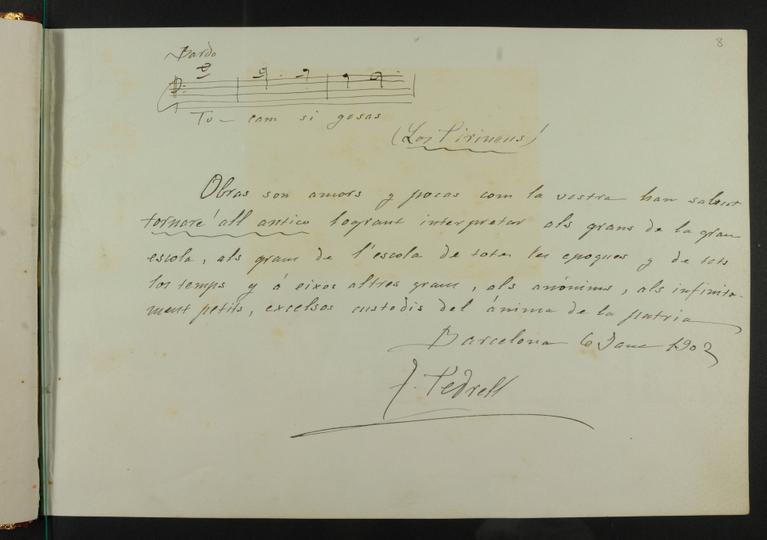 8
Bardo
Tu — cam si gosas
(Los Pirineus)
Obras son amors y pocas com la vostra han sabut
tornare all antico logrant interpretar als grans de la gran
escola, als grans de l'escola de totas las epoques y de tots
los temps y á eixos altres grans, als anónims, als infinita-
ment petits, excelsos custodis del ánima de la patria
Barcelona 6 1902
F. Pedrell